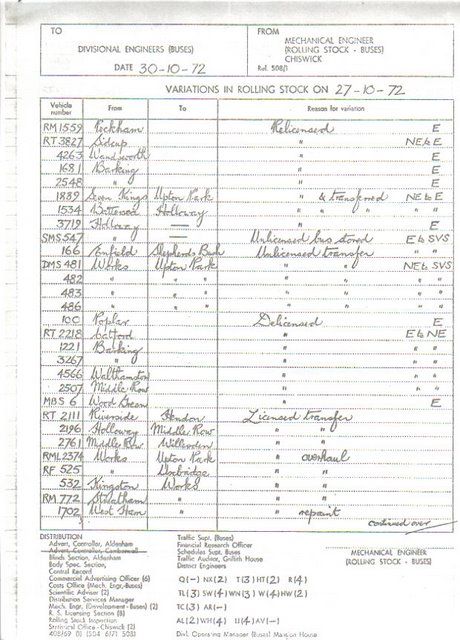 TO
DIVISIONAL ENGINEERS (BUSES)
DATE 30-10-72
FROM
MECHANICAL ENGINEER
(ROLLING STOCK - BUSES)
CHISWICK
Ref. 508/1
VARIATIONS IN ROLLING STOCK ON 27-10-72
Vehicle number From To Reason for variation
RM 1559 Peckham Relicensed E
RT 3827 Sidcup " NE to E
4263 Wandsworth " E
1681 Barking " E
2548 " " E
1889 Seven Kings Upton Park " & transferred NE to E
1534 Battersea Holloway " " " " "
3719 Holloway — " E
SMS 547 " — Unlicensed bus stored E to SVS
166 Enfield Shepherds Bush Unlicensed transfer " "
DMS 481 Works Upton Park " " NE to SVS
482 " " " " " " "
483 " " " " " " "
486 " " " " " " "
100 Poplar Delicensed E
RT 2218 Catford " E to NE
1221 Barking " " "
3267 " " " "
4566 Walthamstow " " "
2507 Middle Row " " "
MBS 6 Wood Green " E
RT 2111 Riverside Hendon Licensed transfer
2196 Holloway Middle Row " "
2761 Middle Row Willesden " "
RML 2374 Works Upton Park " overhaul
RF 525 " Uxbridge "
532 Kingston Works "
RM 772 Streatham " "
1702 West Ham " " repaint
continued over
DISTRIBUTION
Advert. Controller, Aldenham
Advert. Controller, Camberwell
Blinds Section, Aldenham
Body Spec. Section,
Central Record
Commercial Advertising Officer (6)
Costs Office (Mech. Engr.-Buses)
Scientific Adviser (2)
Distribution Services Manager
Mech. Engr. (Development - Buses) (2)
R. S. Licensing Section (8)
Rolling Stock Inspection
Statistical Office - Chiswick (2)
Traffic Supt. (Buses)
Financial Research Officer
Schedules Supt. Buses
Traffic Auditor, Griffith House
District Engineers
Q(-) NX(2) T(3) HT(2) R(4)
TL(3) SW(4) WN(3) W(4) HW(2)
TC(3) AR(-)
AL(2) WH(4) U(4) AV(-)
Divl. Operating Manager (Buses) Manson House
MECHANICAL ENGINEER
(ROLLING STOCK - BUSES)